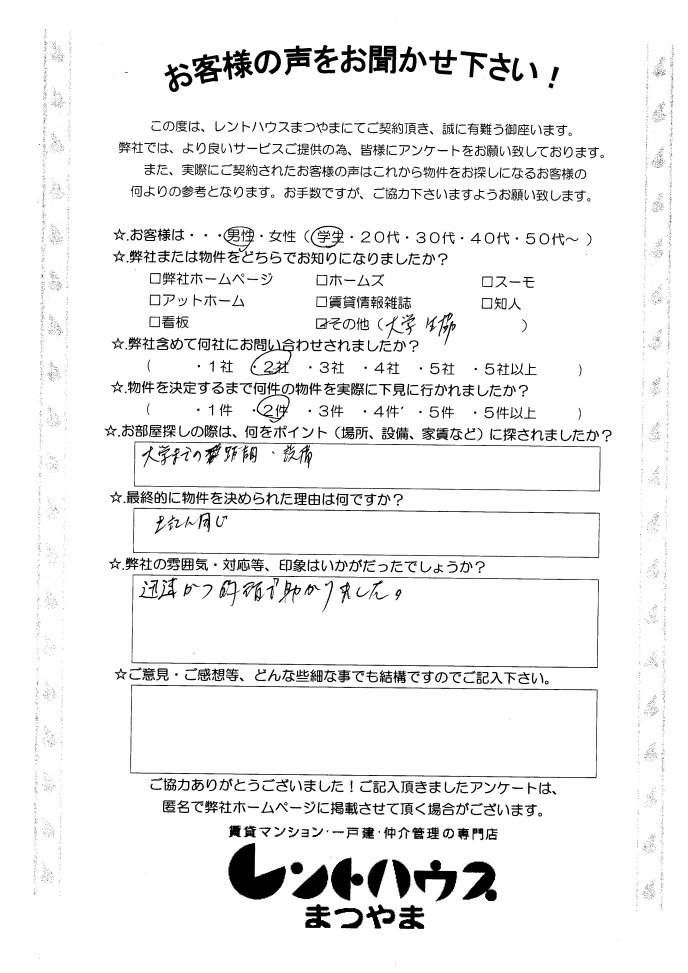 お客様の声をお聞かせ下さい！
この度は、レントハウスまつやまにてご契約頂き、誠に有難う御座います。
弊社では、より良いサービスご提供の為、皆様にアンケートをお願い致しております。
また、実際にご契約されたお客様の声はこれから物件をお探しになるお客様の
何よりの参考となります。お手数ですが、ご協力下さいますようお願い致します。
☆.お客様は・・・男性・女性（学生・２０代・３０代・４０代・５０代～）
☆.弊社または物件をどちらでお知りになりましたか？
□弊社ホームページ　□ホームズ　□スーモ
□アットホーム　□賃貸情報雑誌　□知人
□看板　☑その他（大学生協　）
☆.弊社含めて何社にお問い合わせされましたか？
（　・１社　・２社　・３社　・４社　・５社　・５社以上　）
☆.物件を決定するまで何件の物件を実際に下見に行かれましたか？
（　・１件　・２件　・３件　・４件　・５件　・５件以上　）
☆.お部屋探しの際は、何をポイント（場所、設備、家賃など）に探されましたか？
大学までの　・設備
☆.最終的に物件を決められた理由は何ですか？
同じ
☆.弊社の雰囲気・対応等、印象はいかがだったでしょうか？
迅速かつ　で助かりました。
☆ご意見・ご感想等、どんな些細な事でも結構ですのでご記入下さい。
ご協力ありがとうございました！ご記入頂きましたアンケートは、
匿名で弊社ホームページに掲載させて頂く場合がございます。
賃貸マンション・一戸建・仲介管理の専門店
レントハウス
まつやま